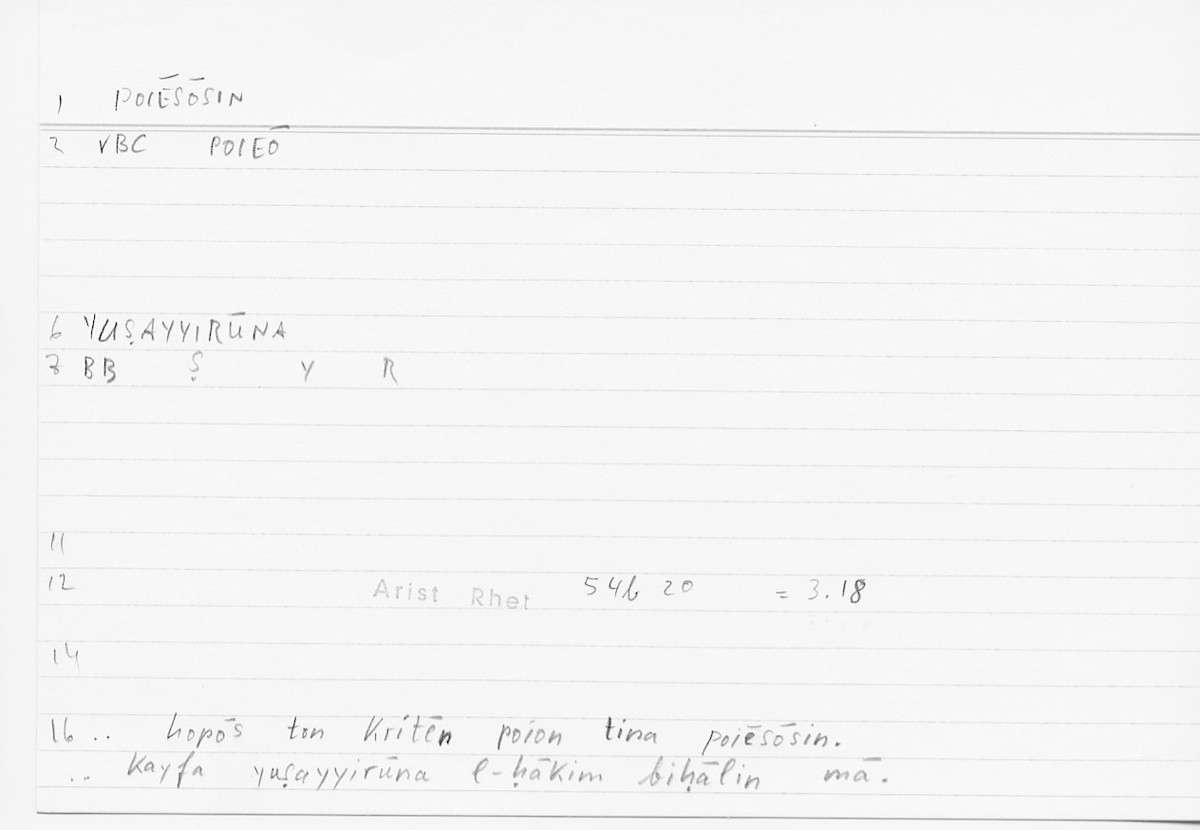 1 POIĒSŌSIN
2 VBC POIEŌ
6 YUṢAYYIRŪNA
7 BB Ṣ Y R
11
12 Arist Rhet 54b 20 = 3.18
14
16 .. hopōs ton Kritēn poion tina poiēsōsin.
.. Kayfa yuṣayyirūna l-ḥākim biḥālin mā.